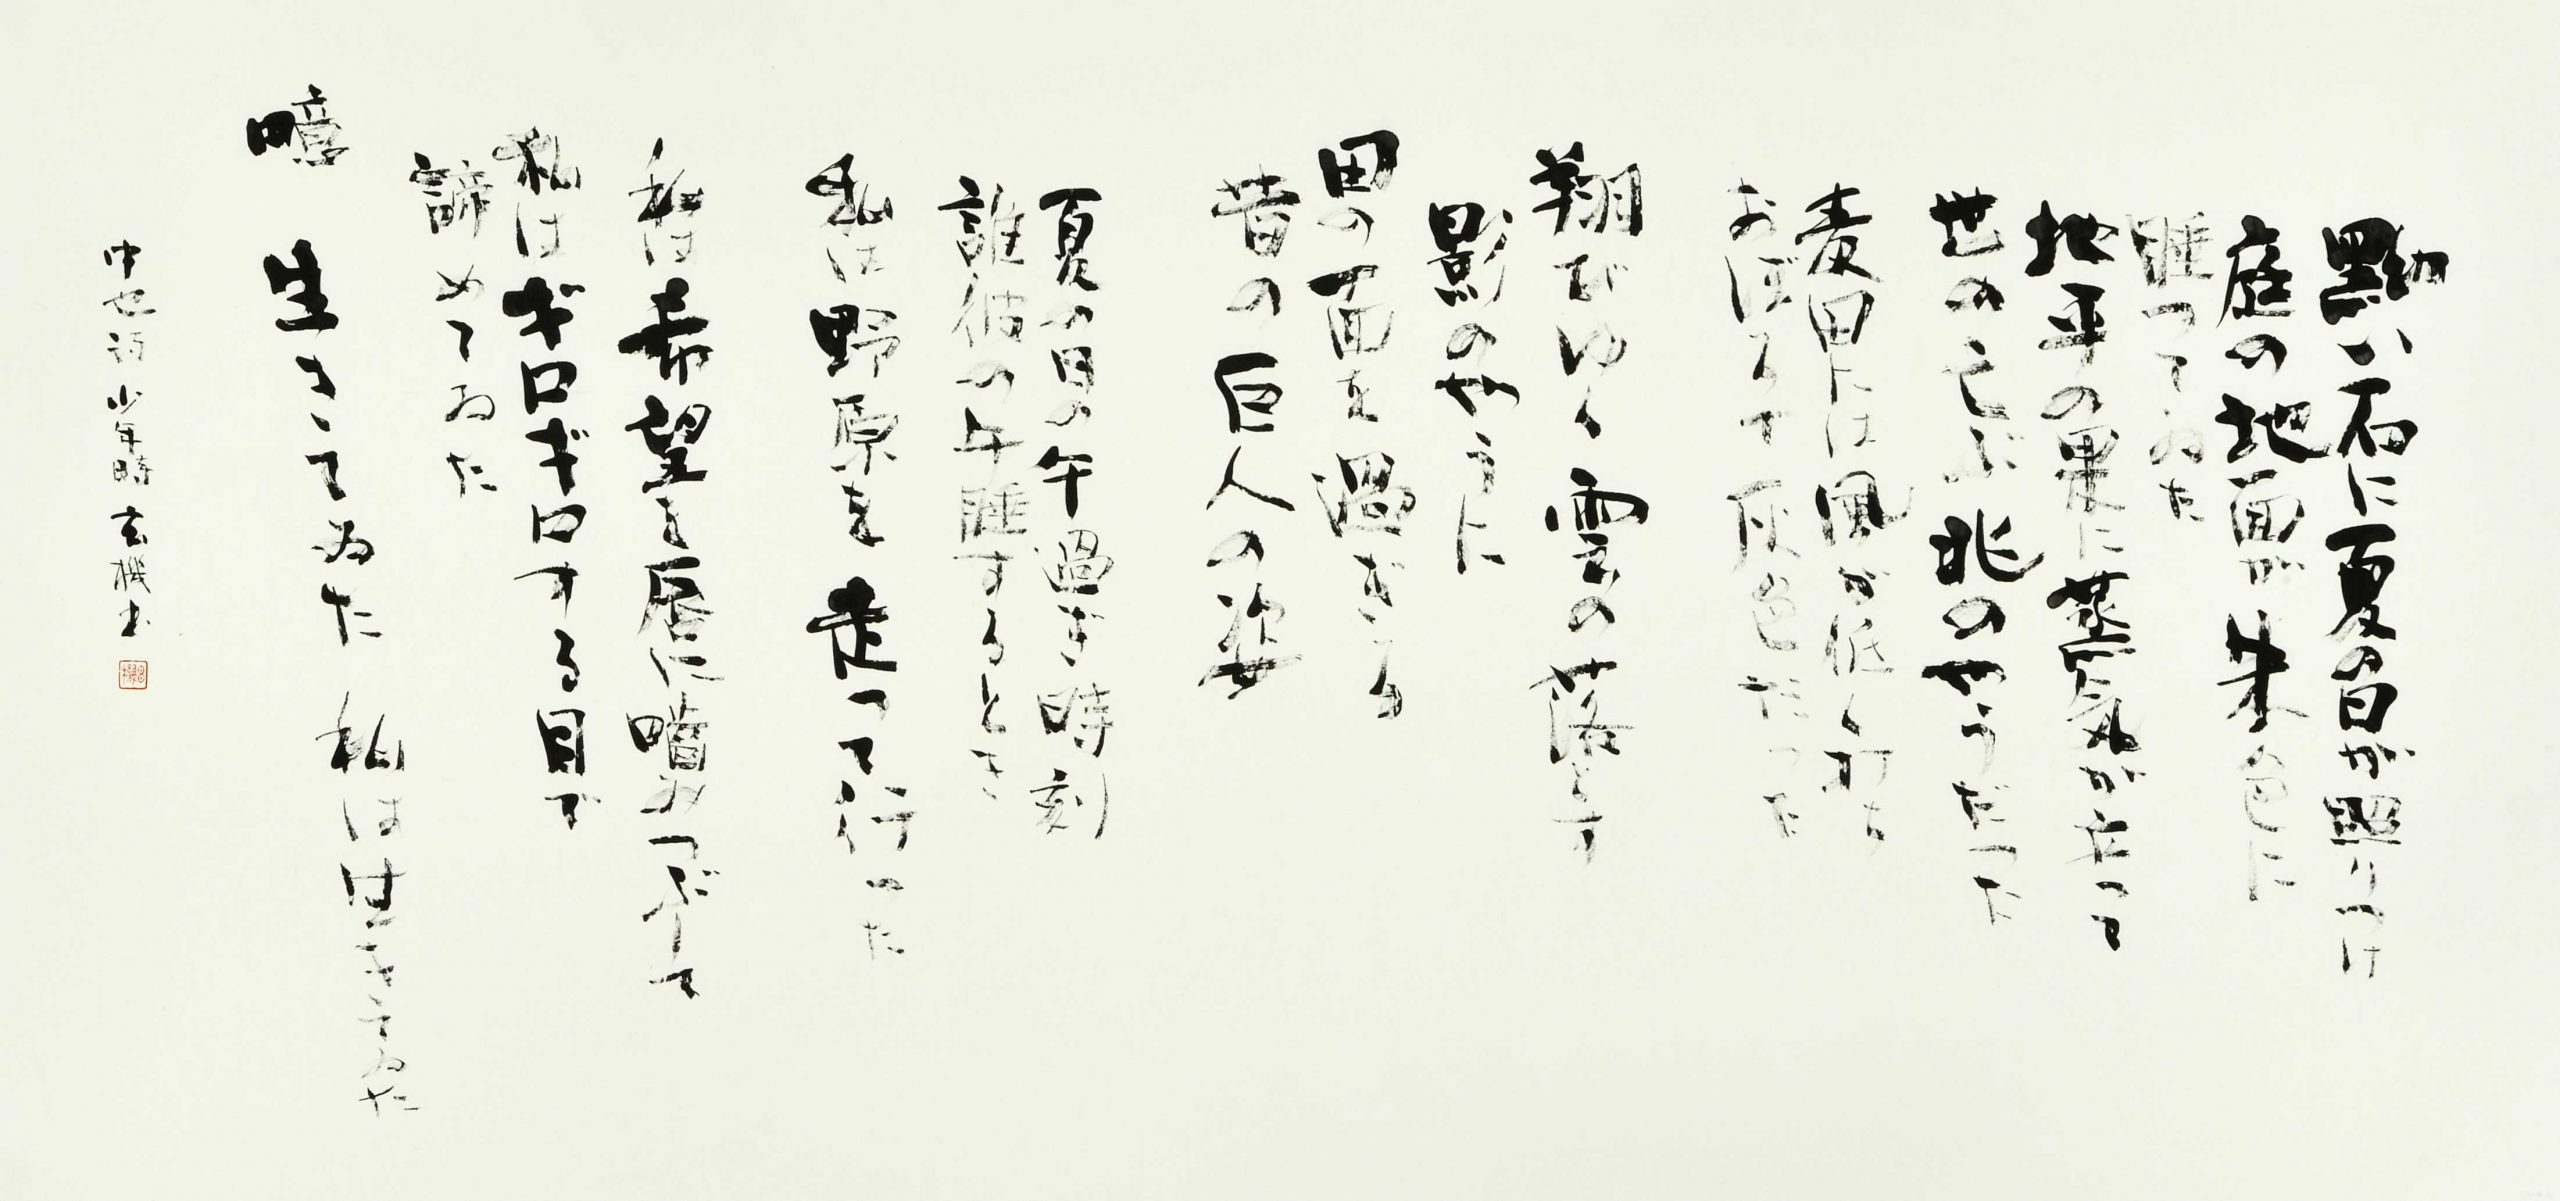 黝い石に夏の日が照りつけ
庭の地面が朱色に
睡つてゐた
地平の果に蒸気が立つて
世の亡ぶ兆のやうだつた
麦田には風が低く打ち
おぼろで灰色だつた
翔びゆく雲の落とす
影のやうに
田の面を過ぎる
昔の巨人の姿
夏の日の午過ぎ時刻
誰彼の午睡するとき
私は野原を走つて行つた
私は希望を唇に噛みつぶして
私はギロギロする目で
諦めてゐた
噫 生きてゐた 私は生きてゐた
中也詩 少年時 玄機書